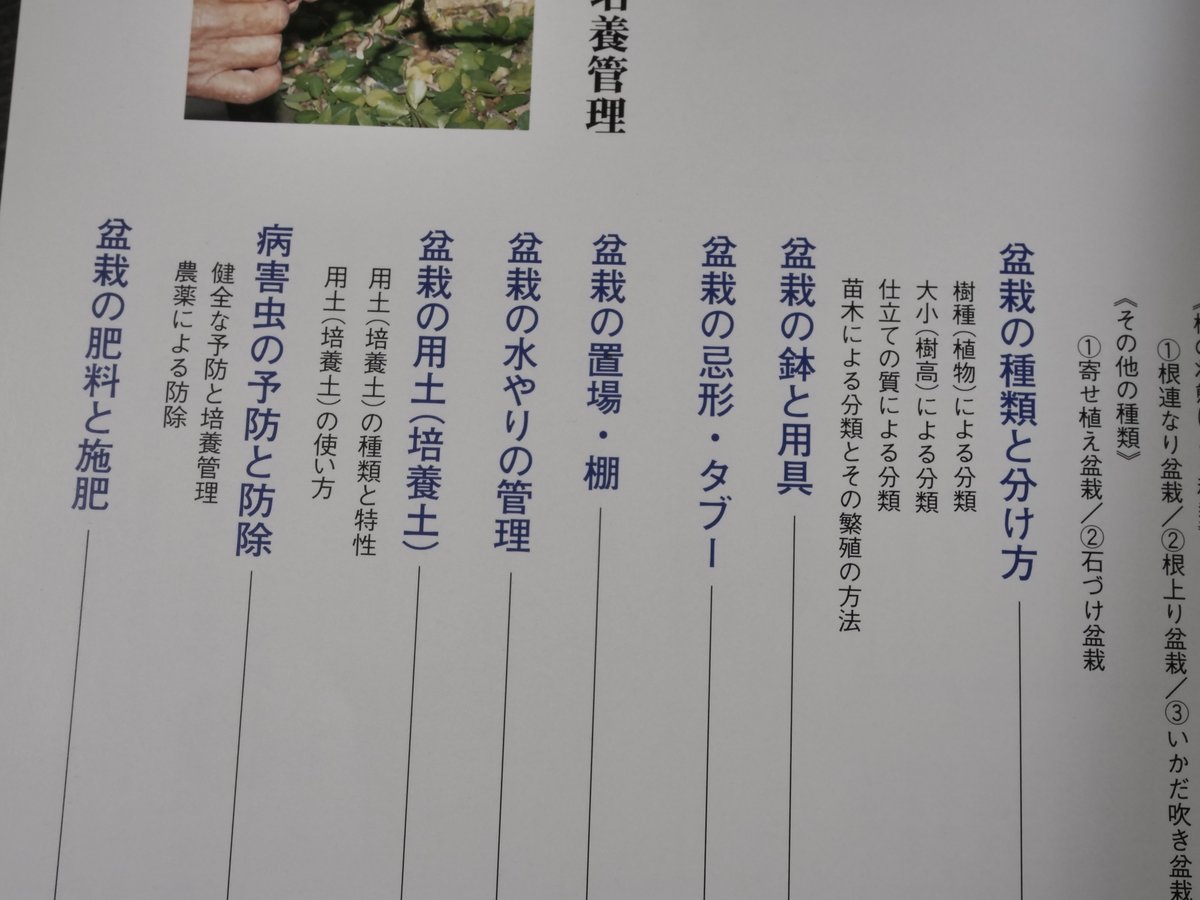 ①根連なり盆栽/②根上り盆栽/③いかだ吹き盆栽
《その他の種類》
①寄せ植え盆栽/②石づけ盆栽
盆栽の種類と分け方
樹種(植物)による分類
大小(樹高)による分類
仕立ての質による分類
苗木による分類とその繁殖の方法
盆栽の鉢と用具
盆栽の忌形・タブー
培養管理
盆栽の置場・棚
盆栽の水やりの管理
盆栽の用土(培養土)
用土(培養土)の種類と特性
用土(培養土)の使い方
病害虫の予防と防除
健全な予防と培養管理
農薬による防除
盆栽の肥料と施肥